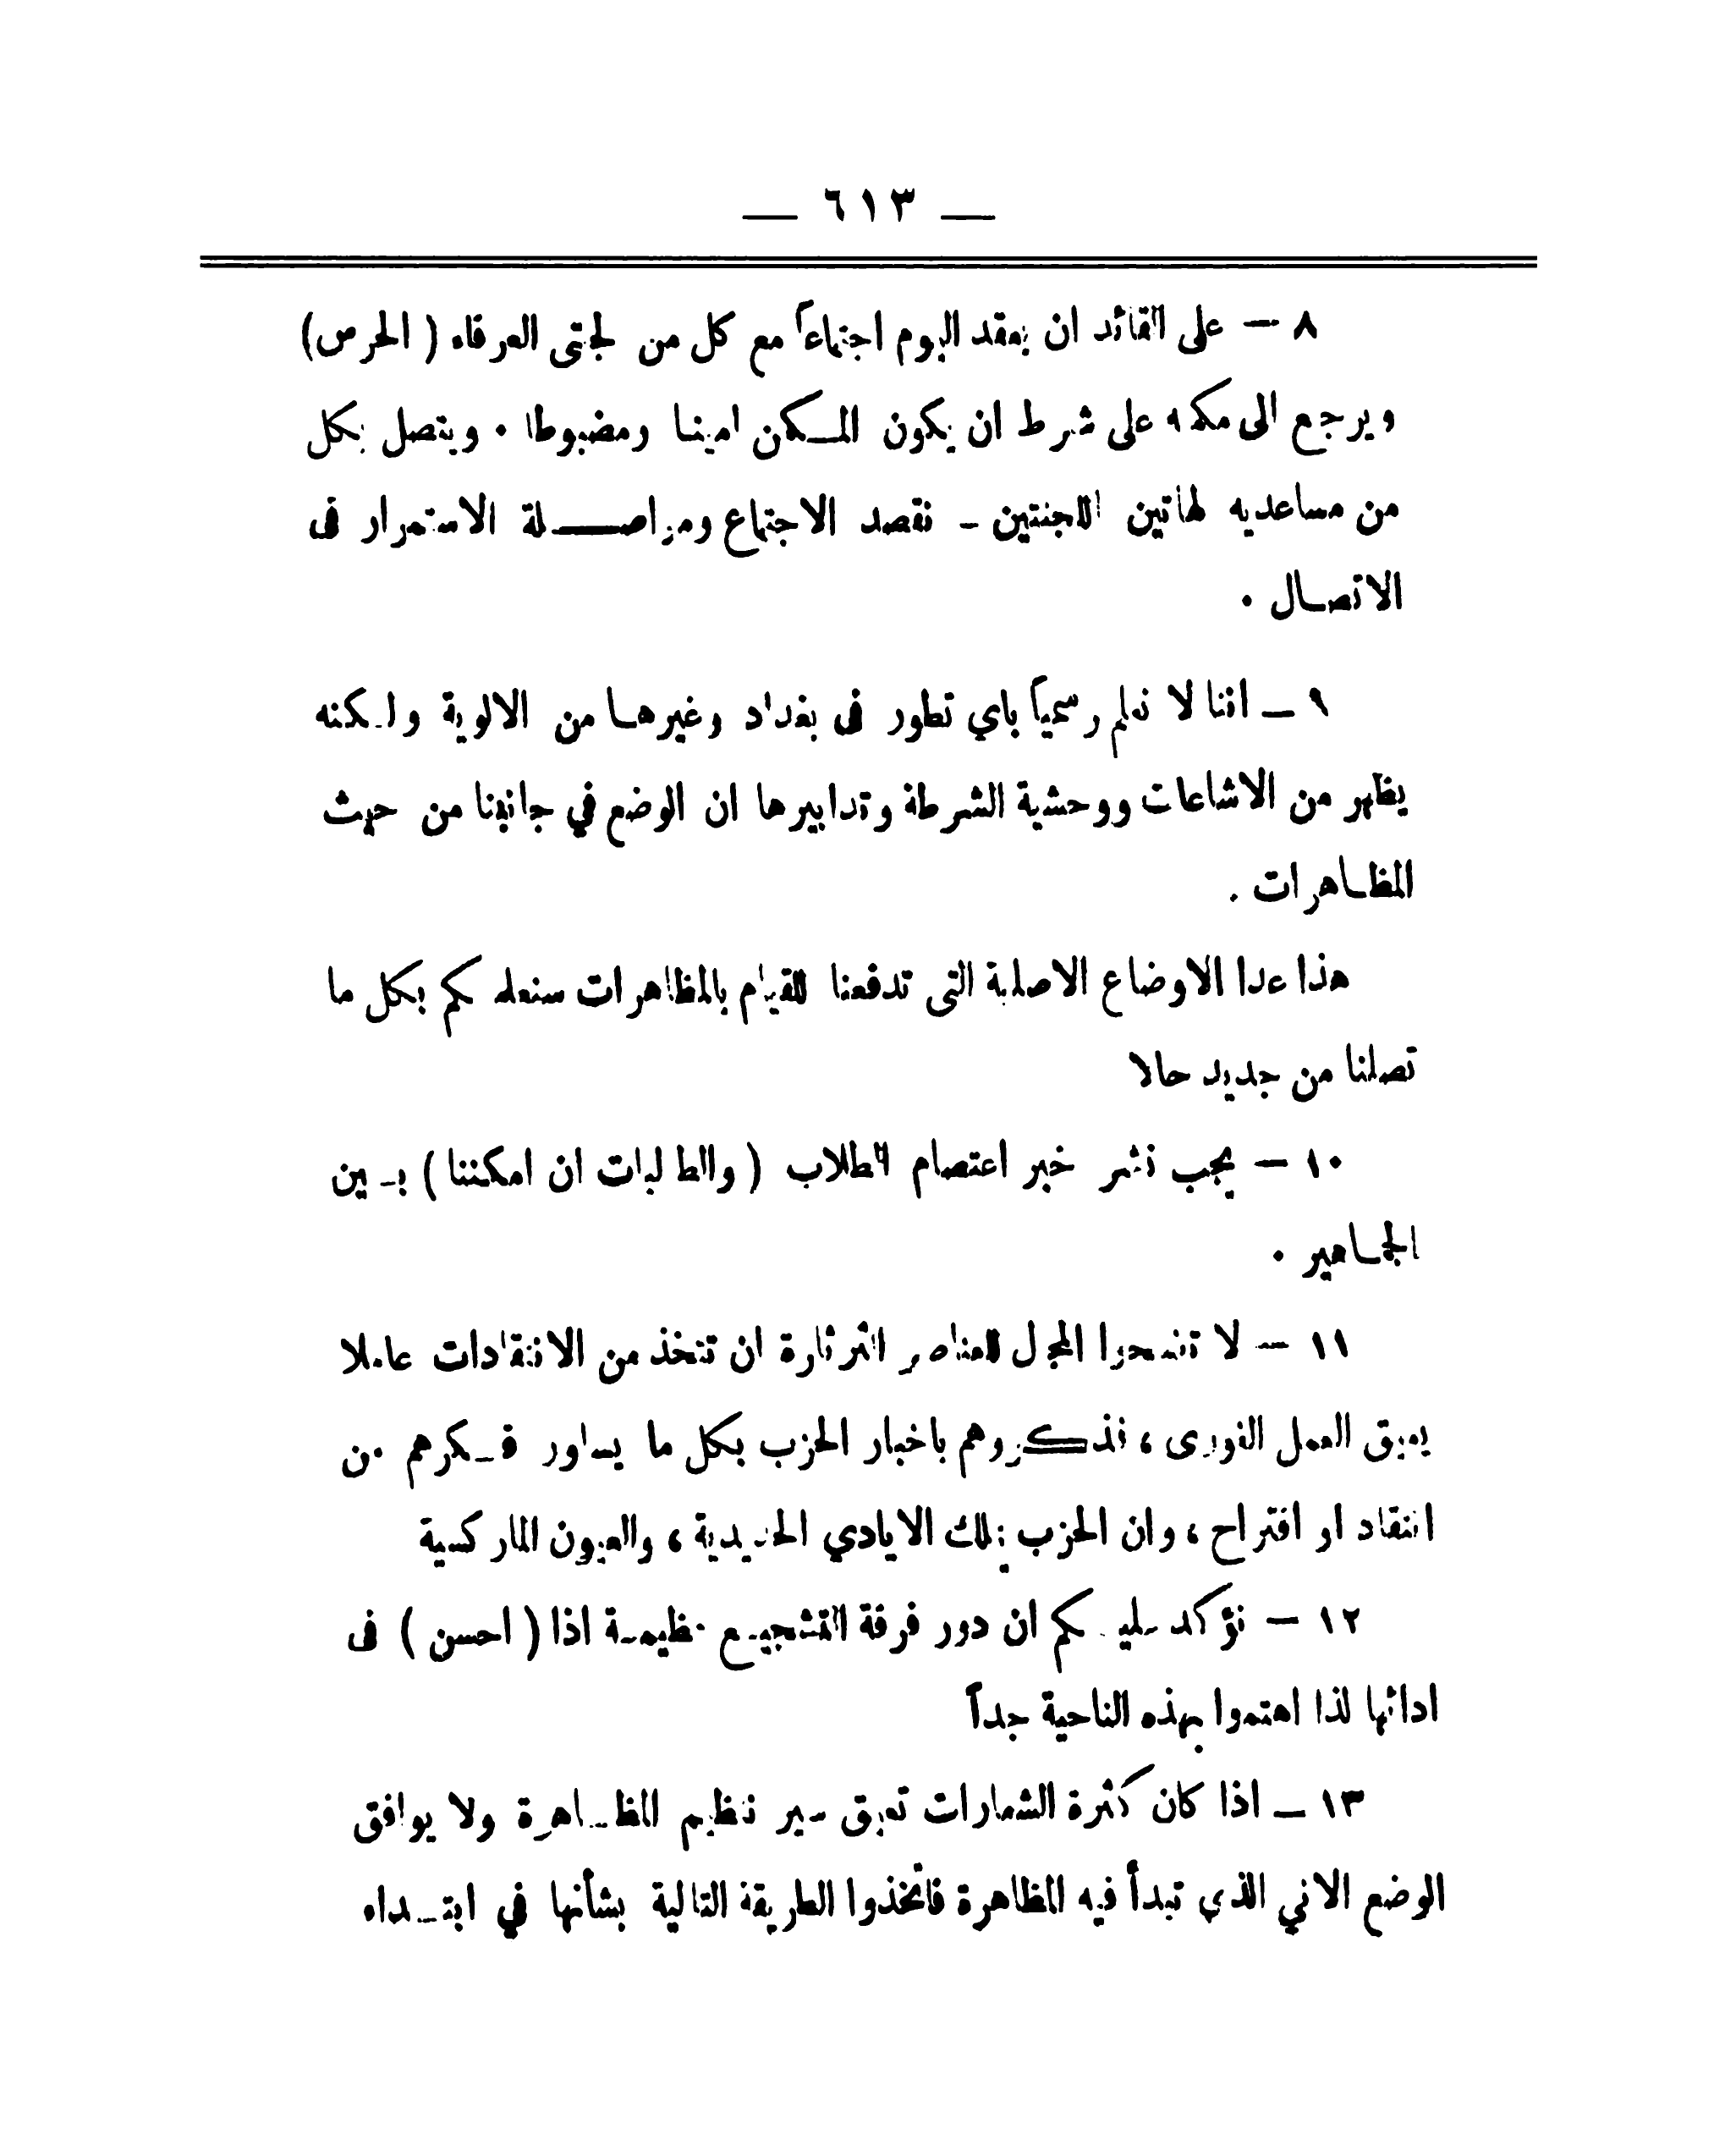 — ٦١٣ —
٨ — على القائد ان يعقد اليوم اجتماعاً مع كل من لجنتى العرفاء ( الحرس )
ويرجع الى مكمنه على شرط ان يكون المسكن امينا ومضبوطا . ويتصل بكل
من مساعديه لهاتين اللجنتين ـ نقصد الاجتماع ومواصلة الاستمرار فى
الاتصال .
٩ ـ اننا لا نعلم رسمياً باي تطور فى بغداد وغيرها من الالوية ولكنه
يظهر من الاشاعات ووحشية الشرطة وتدابيرها ان الوضع في جانبنا من حيث
المظاهرات .
هذا عدا الاوضاع الاصلية التى تدفعنا للقيام بالمظاهرات سنعلمكم بكل ما
تصلنا من جديد حالا
١٠ — يجب نشر خبر اعتصام الطلاب ( والطالبات ان امكننا ) بين
الجماهير .
١١ — لا تفسحوا المجال للعناصر الثرثارة ان تتخذ من الانتقادات عاملا
يعيق العمل الثورى ، نذكروهم باخبار الحزب بكل ما يساور فكرهم من
انتقاد او اقتراح ، وان الحزب يملك الايادي الحديدية ، والعيون الماركسية
١٢ — نؤكد عليكم ان دور فرقة التشجيع عظيمة اذا ( احسن ) فى
ادائها لذا اهتموا بهذه الناحية جداً
١٣ ـ اذا كان كثرة الشعارات تعيق سير تنظيم المظاهرة ولا يوافق
الوضع الاني الذي تبدأ فيه المظاهرة فاتخذوا الطريقة التالية بشأنها في ابتداء